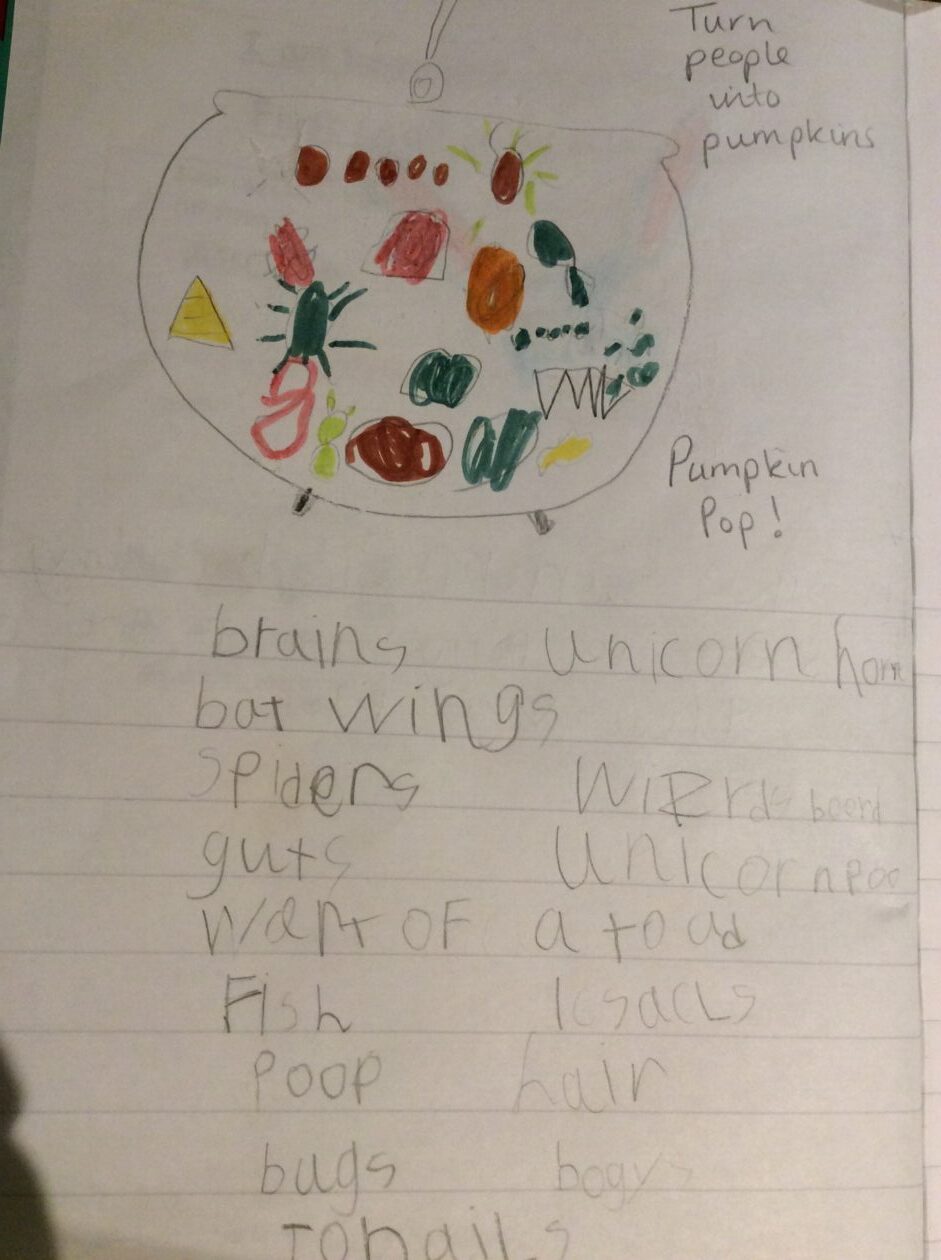 Turn
people
into
pumpkins
Pumpkin
Pop!
brains unicorn horn
bat wings
spiders Wizrds beerd
guts Unicorn poo
Wart OF a toad
Fish Icsacls
Poop hair
bugs bogys
Tonails